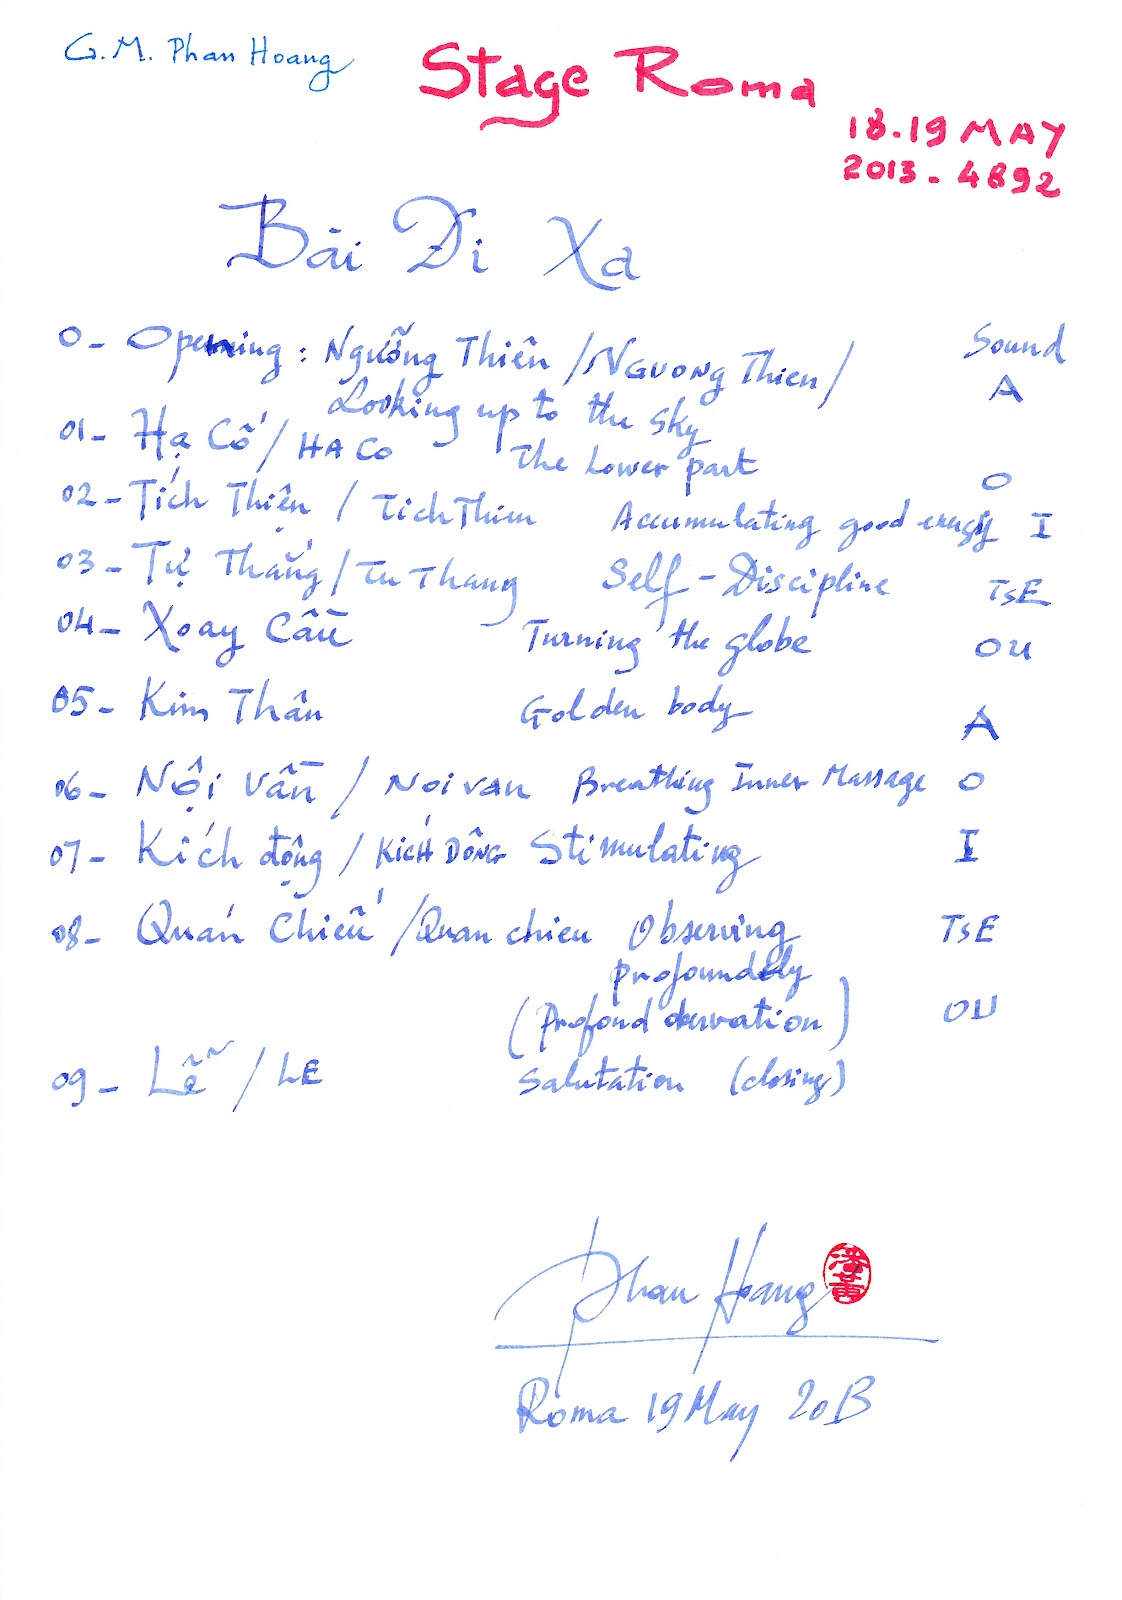 G.M. Phan Hoang
Stage Roma
18.19 MAY
2013 - 4892
Bài Đi Xa
Sound
0 - Opening : Ngưỡng Thiên / NGUONG Thien / A
Looking up to the sky
01 - Hạ Cố / HA Co The Lower part O
02 - Tích Thiện / TichThien Accumulating good energy I
03 - Tự Thắng / Tu Thang Self - Discipline TSE
04 - Xoay Cầu Turning the globe OU
05 - Kim Thân Golden body A
06 - Nội Vần / Noi van Breathing Inner Massage O
07 - Kích động / KICH DÔNG Stimulating I
08 - Quán Chiếu / Quan chieu Observing TSE
profoundely
(Profond observation) OU
09 - Lễ / LE Salutation (closing)
Phan Hoang
Roma 19 May 2013